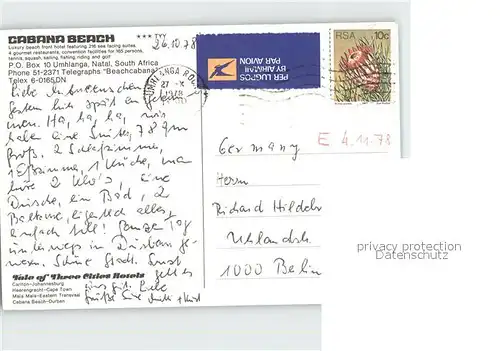 CABANA BEACH *** TYY
Luxury beach front hotel featuring 216 sea facing suites,
4 gourmet restaurants, convention facilities for 165 persons,
tennis, squash, sailing, fishing, riding and golf
P.O. Box 10 Umhlanga, Natal, South Africa
Phone 51-2371 Telegraphs "Beachcabana"
Telex 6-0165DN
26.10.78
Liebe
gestern hier spät an
men. Ha, ha, ha, wir
haben eine Suite, 78 qm
groß. 2 Schlafzimmer,
1 Küche,
2 Klo's, eine
Dusche, ein Bad, 2
Balkone, eigentlich alles
einfach toll! Ganzen Tag
unterwegs in Durban ge-
wesen. Schöne Stadt. Sonst
geht es
uns gut. Liebe
Grüße Eure
Tale of Three Cities Hotels
Carlton-Johannesburg
Heerengracht-Cape Town
Mala Mala-Eastern Transvaal
Cabana Beach-Durban
PER LUGPOS
BY AIR MAIL
PAR AVION
UMHLANGA ROCKS
27
RSA 10c
Germany
E 4.11.78
Herrn
Richard
Uhlandstr.
1000 Berlin
privacy protection
Datenschutz